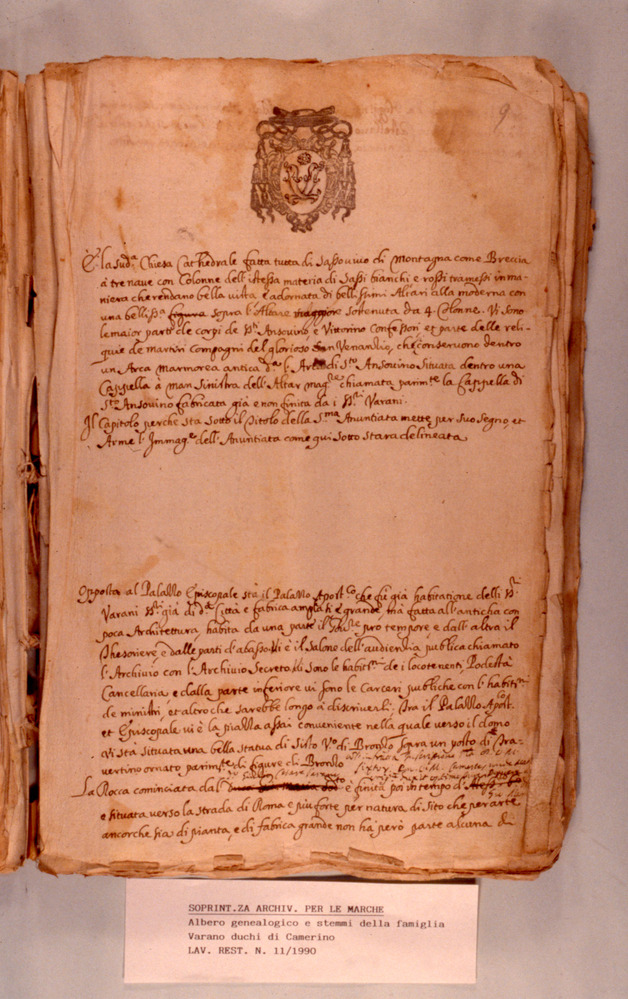 9
È la sud.ª Chiesa Cathedrale fatta tutta di Sasso vivo di Montagna come Brecia
à tre nave con Colonne dell'istessa materia di Sassi bianchi e rossi tramessi in ma-
niera che rendano bella vista è adornata di belliss:mi Altari alla moderna con
una belliss.ª figura sopra l'Altare maggiore sostenuta da 4 Colonne. Vi sono
le maior parte de corpi de SS.ti Ansovino e Vittorino Confessori et parte delle reli-
quie de Martiri Compagni del glorioso San Venantio, che conservono dentro
un Arca Marmorea antica d.ª l'Arca di S.to Ansovino situata dentro una
Cappella à man sinistra dell'Altar mag.re chiamata parim.te la Cappella di
S.to Ansovino fabricata già e non finita da i SS.ri Varani.
Il Capitolo perche sta sotto il Titolo della S.ma Anuntiata mette per suo segno, et
Arme l'Immag.e dell'Anuntiata come qui sotto stara delineata
Opposto al Palazzo Episcopale stà il Palazzo Apost.co che fù già habitatione delli SS.ri
Varani SS.ri già di d.ª Città e fabrica ampla et è grande, mà fatta all'anticha con
poca Architettura habita da una parte il pro tempore e dall'altra il
Thesoriere, e dalle parti d'abasso vi è il salone dell'audientia publica chiamato
l'Archivio con l'Archivio Secreto vi sono le habit.ni de i locotenenti Podestà
Cancellaria e dalla parte inferiore vi sono le Carceri publiche con l'habit.ni
de ministri, et altro che sarebbe longo à discriverli. Tra il Palazzo Apost.co
et Episcopale vi è la piazza assai conveniente nella quale verso il domo
vi sta situata una bella statua di Sisto V.º di Bronzo sopra un posto di Tra-
vertino ornato parim.te di figure di Bronzo
La Rocca cominciata dal e finita poi in tempo di
è situata verso la strada di Roma e più forte per natura di sito che per arte
ancorche sia di pianta, e di fabrica grande non hà però parte alcuna di
SOPRINT.ZA ARCHIV. PER LE MARCHE
Albero genealogico e stemmi della famiglia
Varano duchi di Camerino
LAV. REST. N. 11/1990